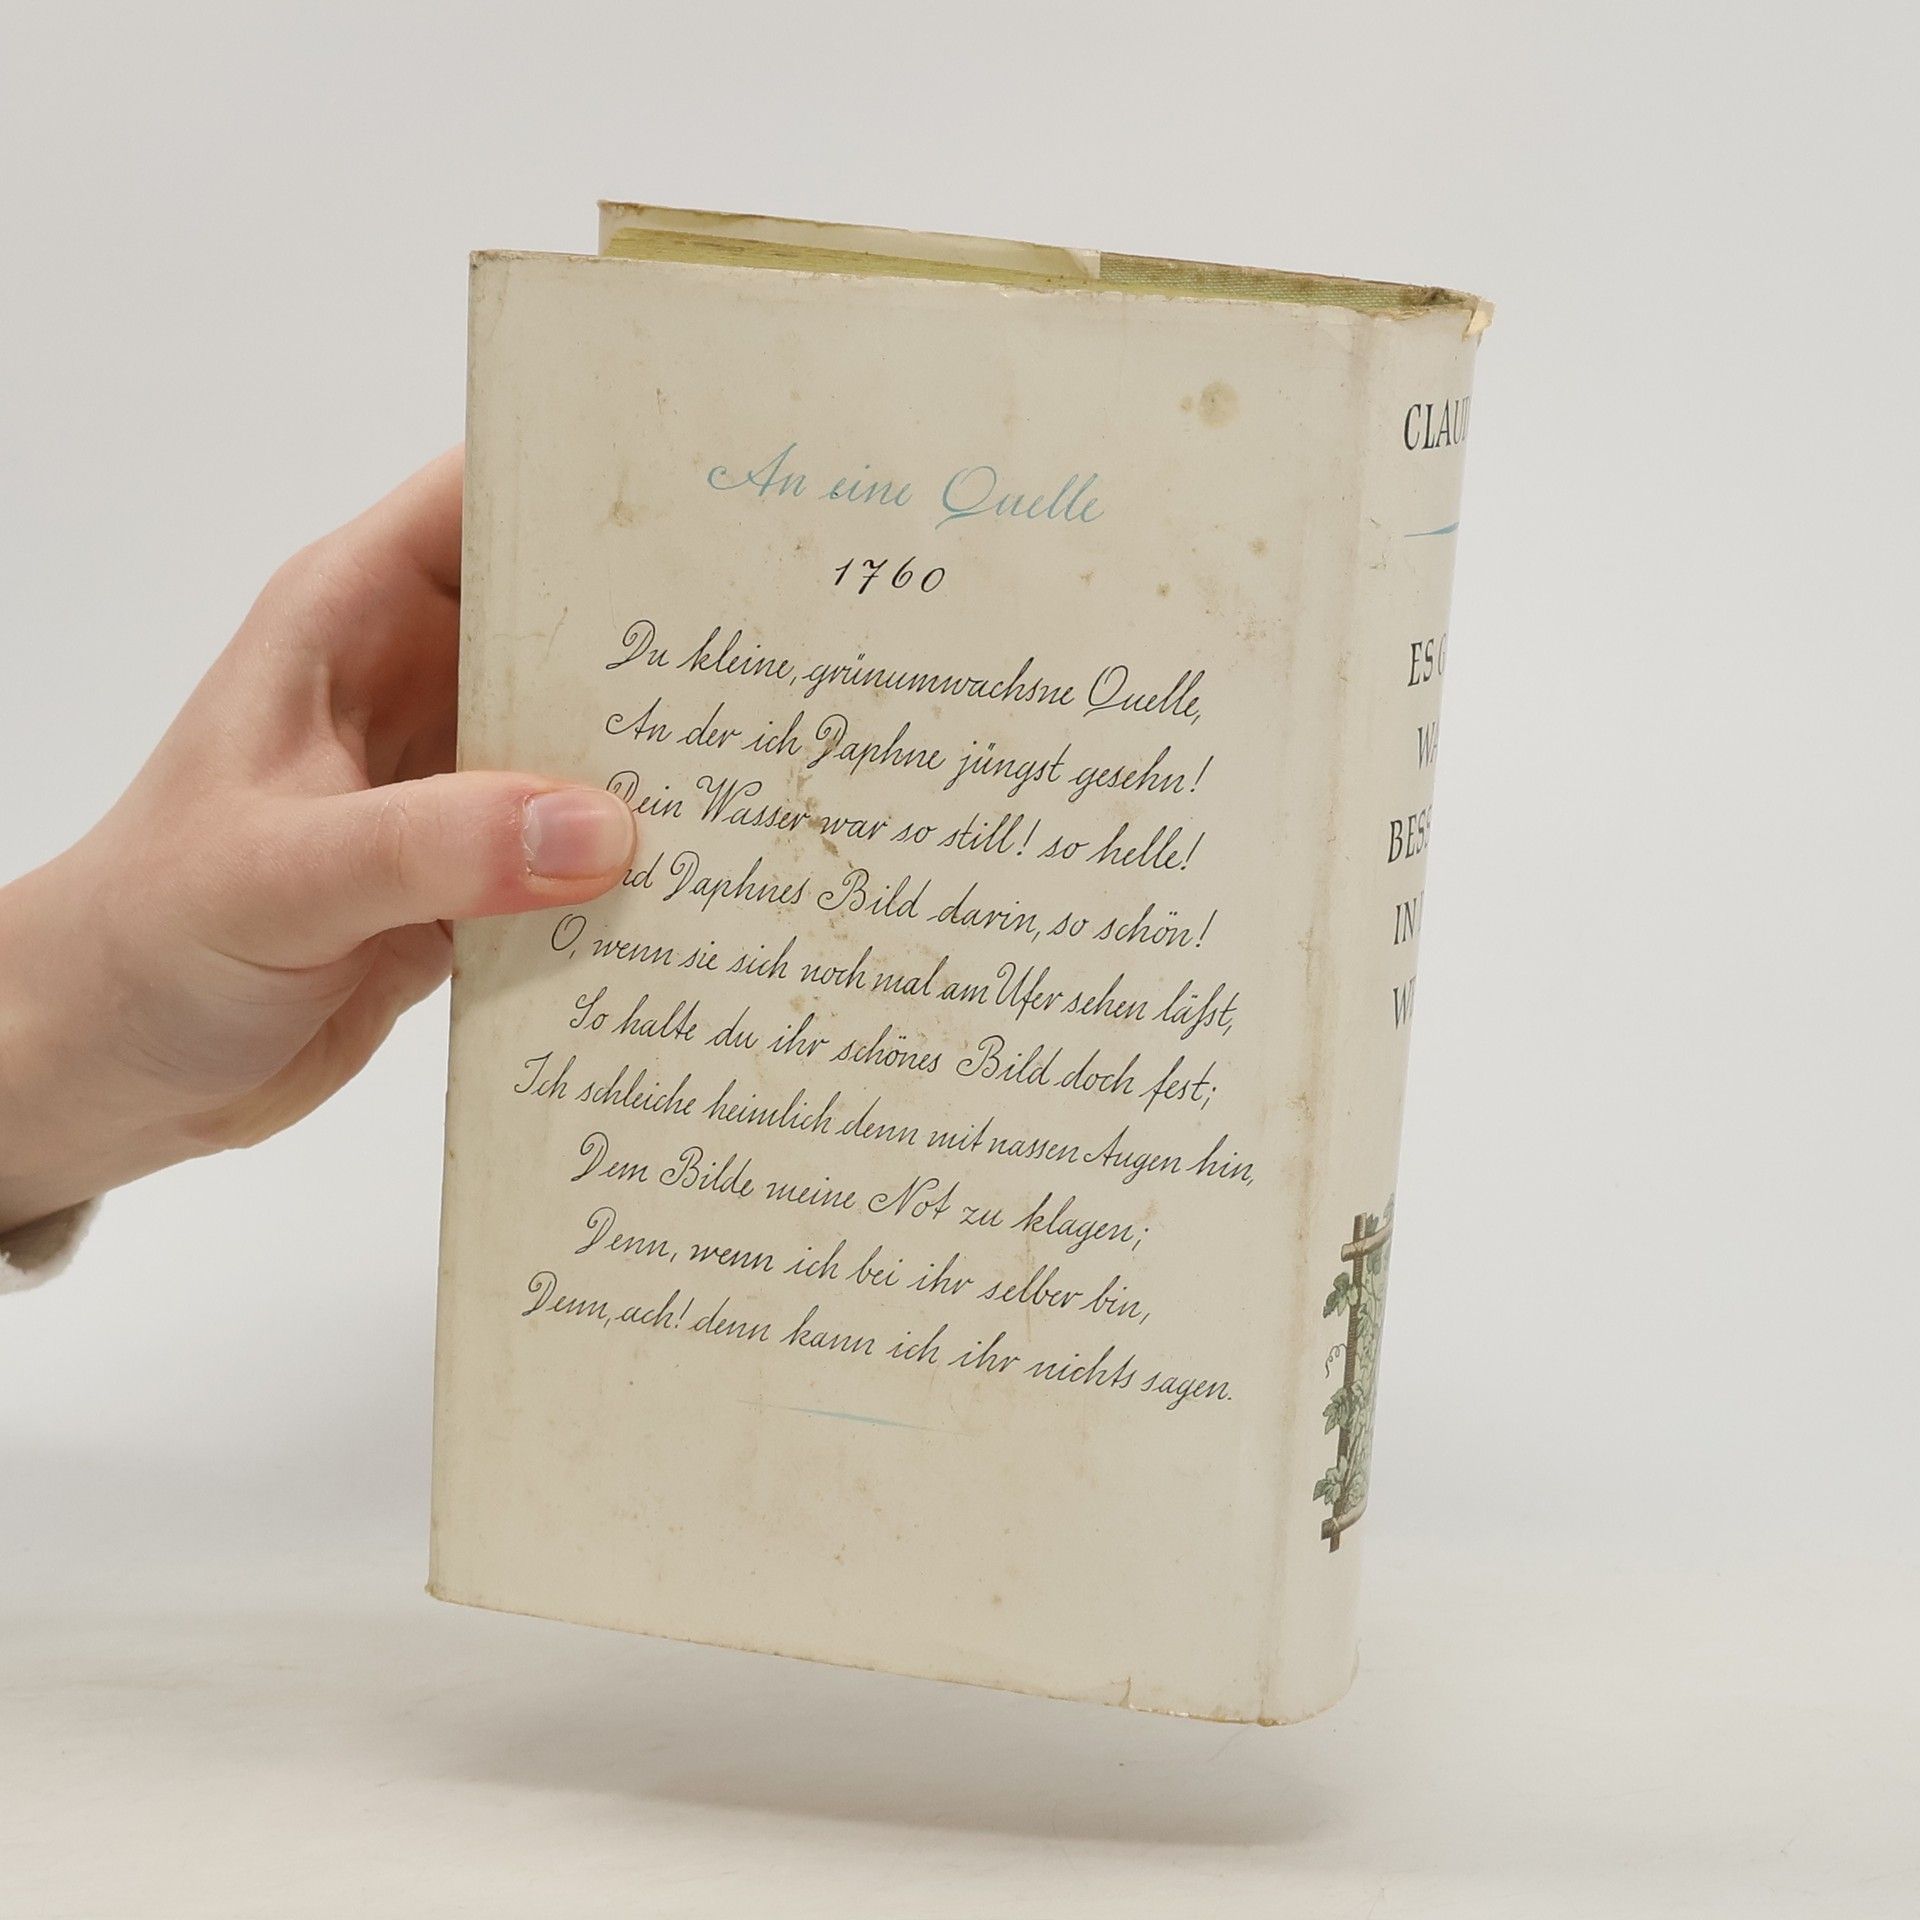 An eine Quelle
1760
Du kleine, grünumwachsne Quelle,
An der ich Daphne jüngst gesehn!
Dein Wasser war so still! so helle!
nd Daphnes Bild darin, so schön!
O, wenn sie sich noch mal am Ufer sehen läßt,
So halte du ihr schönes Bild doch fest;
Ich schleiche heimlich denn mit nassen Augen hin,
Dem Bilde meine Not zu klagen;
Denn, wenn ich bei ihr selber bin,
Denn, ach! denn kann ich ihr nichts sagen.
CLAUD
ES G
WA
BESS
IN
WE